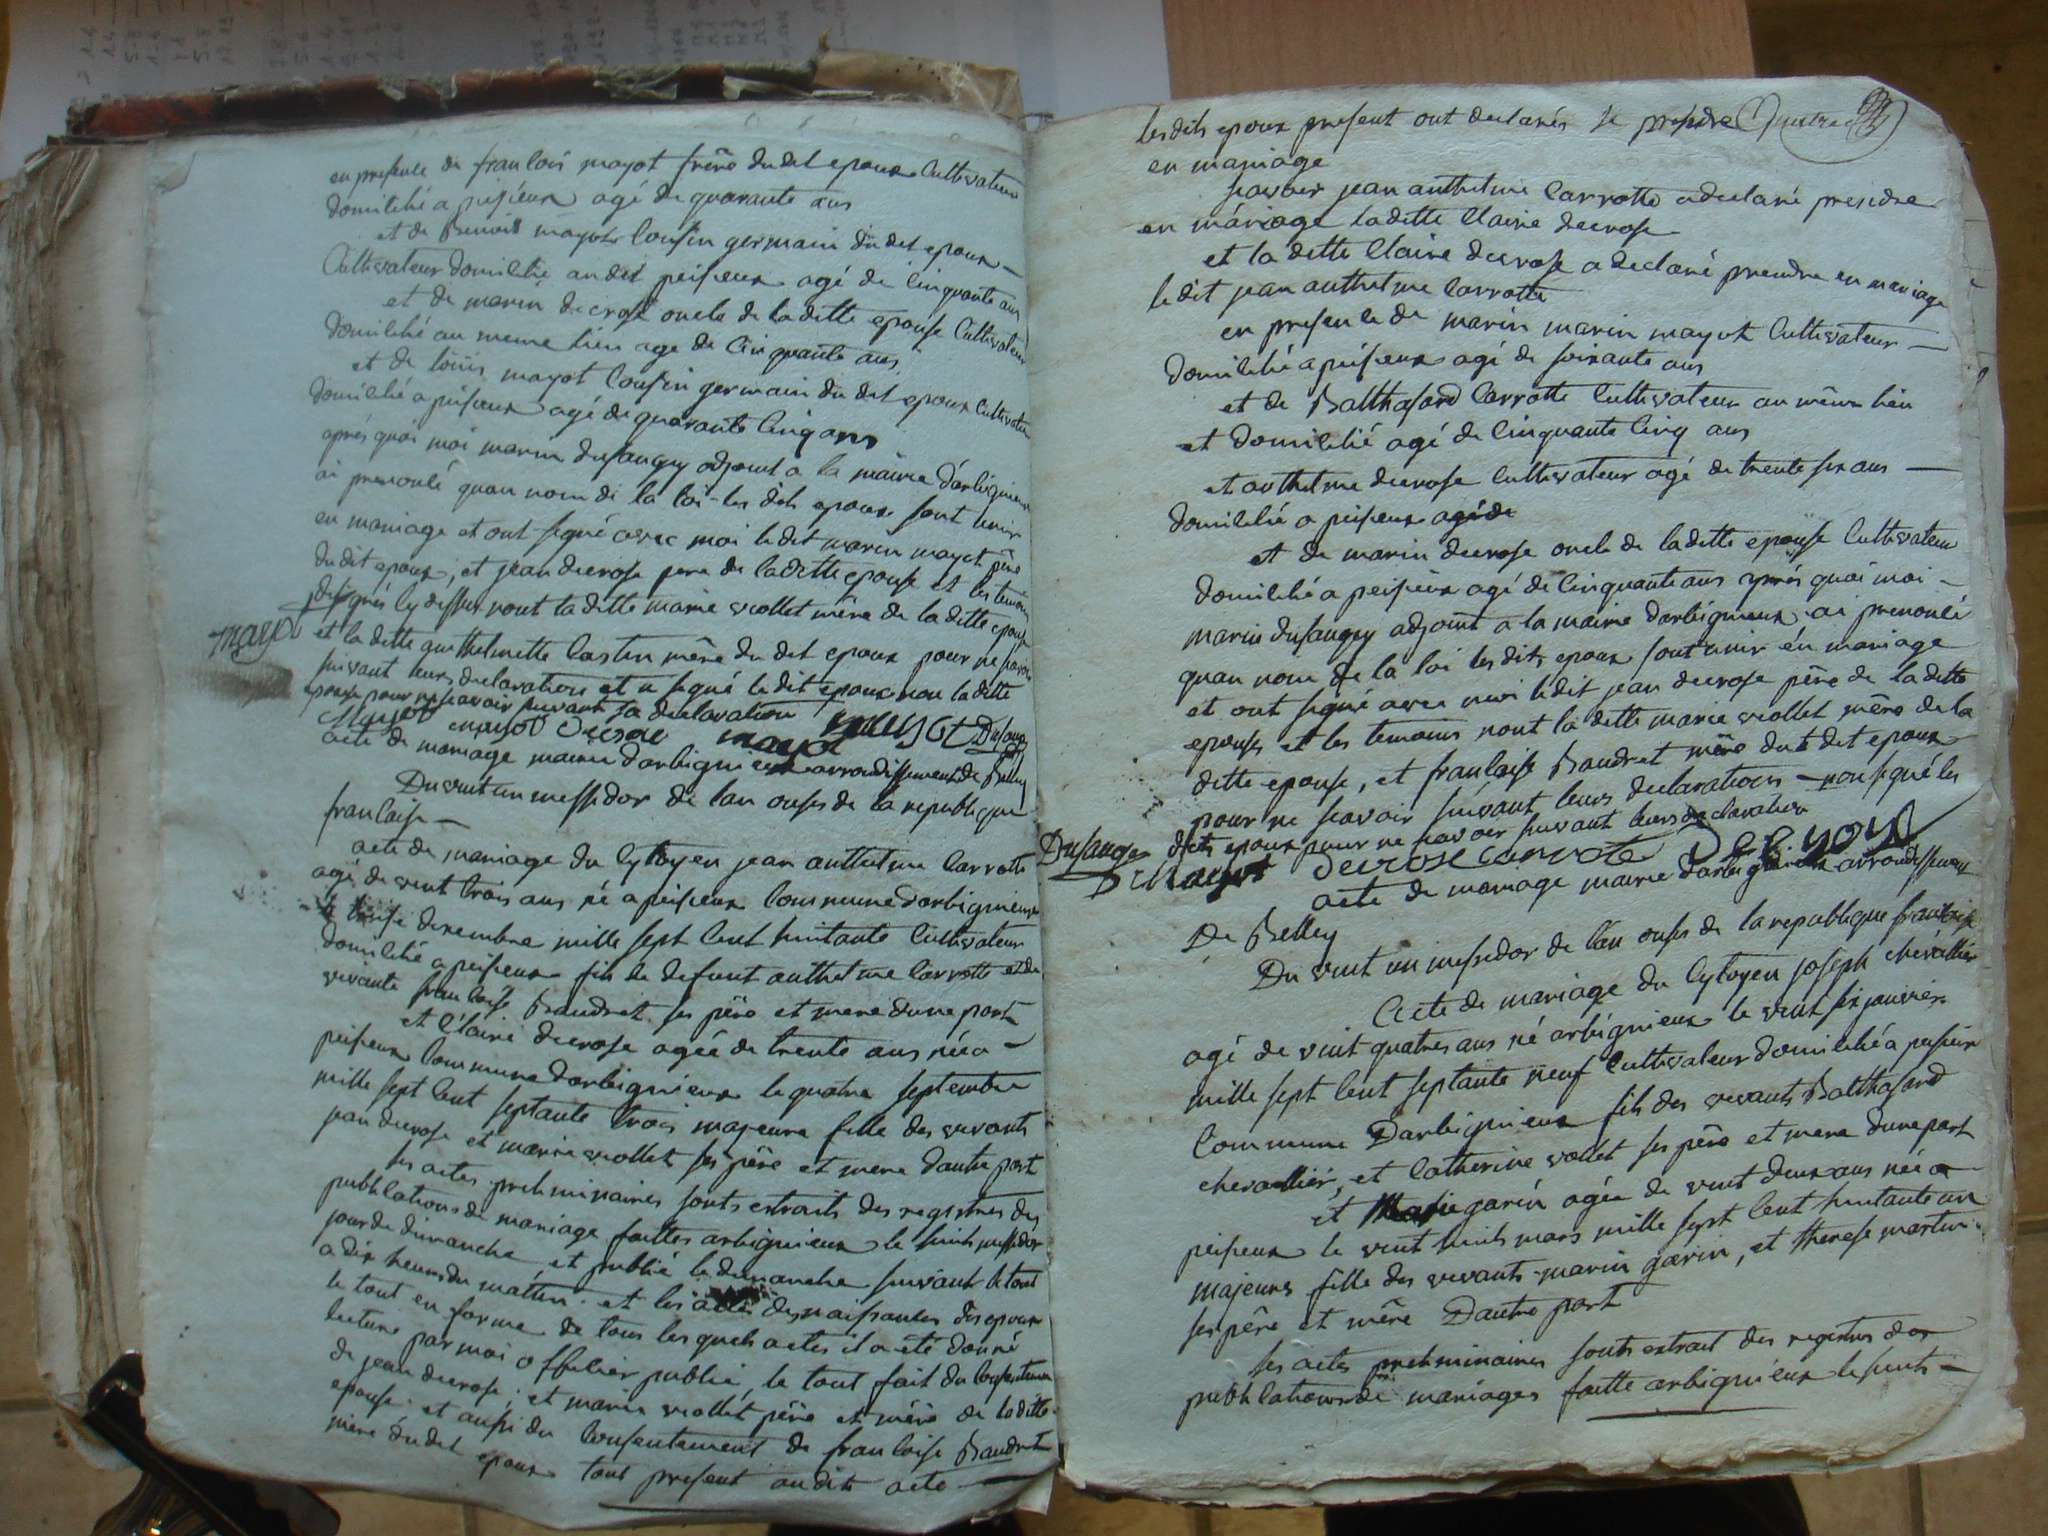 en presence de francois mayot frère du dit epoux Cultivateur
domicilié a peisieux agé de quarante ans
et de Benoit mayot Cousin germain du dit epoux
Cultivateur domicilié au dit peisieux agé de Cinquante ans
et de marin decrose oncle de la ditte epouse Cultivateur
domicilié au meme lieu agé de Cinquante ans
et de louis mayot Cousin germain du dit epoux Cultivateur
domicilié a peisieux agé de quarante Cinq ans
après quoi moi marin dusaugey adjoint a la mairie d'arbignieux
ai prenoncé quau nom de la loi les dits epoux sont unir
en mariage et ont signé avec moi le dit marin mayot père
du dit epoux, et jean decrose pere de la ditte epouse et les temoins
designés cy dessus nont la ditte marie viollet mère de la ditte epouse
mayot
et la ditte anthelmette Castin mère du dit epoux pour ne savoir
suivant leurs declaration et a signé le dit epoux non la ditte
epouse pour ne scavoir suivant sa declaration
Mayot mayot Decrose mayot mayot Dusaugey
acte de mariage mairie d'arbignieux arrondissement de Belley
Du vint un messidor de l'an onses de la republique
francaise
acte de mariage du Cytoyen jean anthelme Carrotte
agé de vint trois ans né a peisieux Commune d'arbignieux
le treise decembre mille sept Cent huitante Cultivateur
domicilié a peisieux fils de defunt anthelme Carrotte et de
vivante francoise Baudret ses père et mere dune part
et Claire decrose agée de trente ans née a
peisieux Commune d'arbignieux le quatre septembre
mille sept Cent septante trois majeure fille des vivants
jean decrose et marie viollet ses père et mere dautre part
les actes preliminaires sonts extraits des registres des
publications de mariage faittes arbignieux le huit messidor
jour de dimanche, et publié le dimanche suivant le tout
a dix heures du mattin et les actes des naissances des epoux
le tout en forme de tous les quels actes il a été donné
lecture par moi officier public, le tout fait du consentement
de jean decrose, et marie viollet père et mère de la ditte
epouse et aussi du Consentement de francoise Baudret
mère du dit epoux tous present au dits acte
les dits epoux present ont declarés se prendre
en mariage
scavoir jean anthelme Carrotte a declaré prendre
en mariage la ditte Claire decrose
et la ditte Claire decrose a declaré prendre en mariage
le dit jean anthelme Carrotte
en presence de marin marin mayot Cultivateur
domicilié a peisieux agé de soixante ans
et de Balthasard Carrotte Cultivateur au même lieu
et domicilié agé de Cinquante Cinq ans
et anthelme decrose Cultivateur agé de trente six ans
domicilié a peisieux agé de
et de marin decrose oncle de la ditte epouse Cultivateur
domicilié a peisieux agé de Cinquante ans après quoi moi
marin dusaugey adjoint a la mairie d'arbignieux ai prenoncé
quau nom de la loi les dits epoux sont unir en mariage
et ont signé avec moi le dit jean decrose père de la ditte
epouse et les temoins nont la ditte marie viollet mère de la
ditte epouse, et francoise Baudret mère du dit epoux
pour ne scavoir suivant leurs declarations non signé les
dits epoux pour ne scavoir suivant leurs declaration
Dusaugey Mayot decrose carrote decrose
acte de mariage mairie d'arbignieux arrondissement
De Belley
Du vint un messidor de l'an onses de la republique francaise
Acte de mariage du Cytoyen joseph chevallier
agé de vint quatres ans né arbignieux le vint six janvier
mille sept Cent septante neuf Cultivateur domicilié a peisieux
Commune Darbignieux fils des vivants Balthasard
chevallier, et Catherine vollet ses père et mere dune part
et Marie garin agée de vint deux ans née a
peisieux le vint huits mars mille sept Cent huitante un
majeure fille des vivants marin garin, et therese martin
ses père et mère Dautre part
les actes preliminaires sonts extrait des registres des
publications de mariages faitte arbignieux le huits